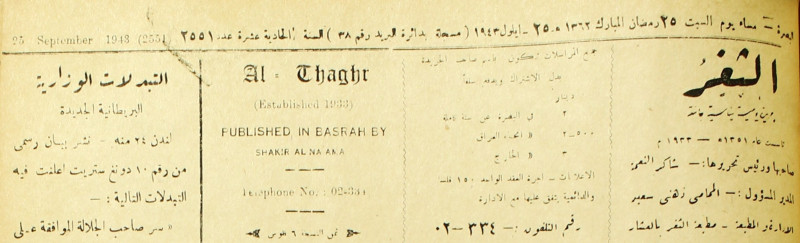 البصرة: — مساء يوم السبت ٢٥ رمضان المبارك ١٣٦٢ هـ ٢٥ - ايلول ١٩٤٣ ( مسجلة بدائرة البريد رقم ٣٨ ) السنة الحادية عشرة عدد ٢٥٥١
25 September 1943 (2551)
الثغر
جريدة يومية سياسية عامة
تأسست عام ١٣٥١ هـ — ١٩٣٣ م
صاحبها ورئيس تحريرها: — شاكر النعمة
المدير المسؤول: — المحامي ذهني سعيد
الادارة والمطبعة - مطبعة الثغر بالعشار
جميع المراسلات تكون باسم صاحب الجريدة
بدل الاشتراك ويدفع سلفاً
دينار
٢ في البصرة عن سنة كاملة
٢-٥٠٠ » انحاء العراق
٣ » الخارج
الاعلانات - اجرة العقد الواحد ١٥٠ فلسا
والدائمية يتفق عليها مع الادارة
رقم التلفون: — ٣٣٤-٠٢
Al - Thaghr
(Established 1933)
PUBLISHED IN BASRAH BY
SHAKIR AL NAAMA
Telephone No. : 02-334
ثمن النسخة ٦ فلوس
التبدلات الوزارية
البريطانية الجديدة
لندن ٢٤ منه - نشر بيان رسمي
من رقم ١٠ دوننغ ستريت اعلنت فيه
التبدلات التالية: —
« سر صاحب الجلالة الموافقة على